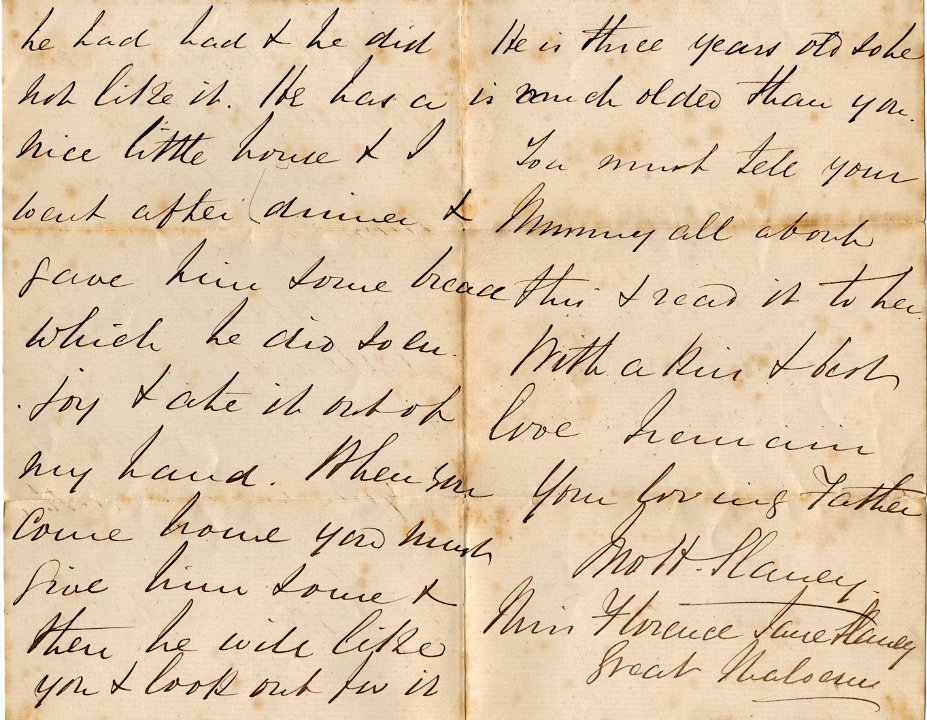 he had had & he did
not like it. He has a
nice little house & I
went after dinner &
gave him some bread
which he did so en
joy & ate it out of
my hand. When you
come home you must
give him some &
then he will like
you & look out for it
He is three years old so he
is much older than you.
You must tell your
Mummy all about
this & read it to her.
With a kiss & best
love I remain
Your loving Father
Jno H. Slaney.
Miss Florence Jane Slaney
Great Malvern